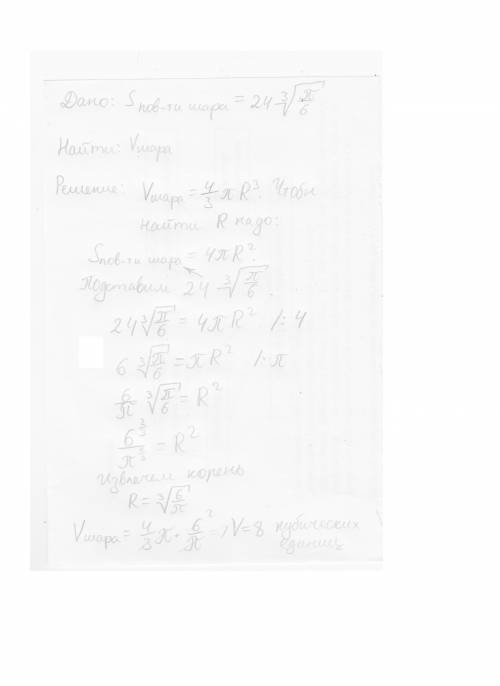 Дано: Sпов-ти шара = 24∛(π/6)
Найти: Vшара
Решение: Vшара = 4/3 π R³. Чтобы
найти R надо:
Sпов-ти шара = 4πR².
Подставим 24 ∛(π/6).
24∛(π/6) = 4πR² /: 4
6 ∛(π/6) = πR² /: π
6/π ∛(π/6) = R²
= R²
Извлечем корень
R = ∛(6/π)
Vшара = 4/3 π · 6/π = V = 8 кубических
единиц